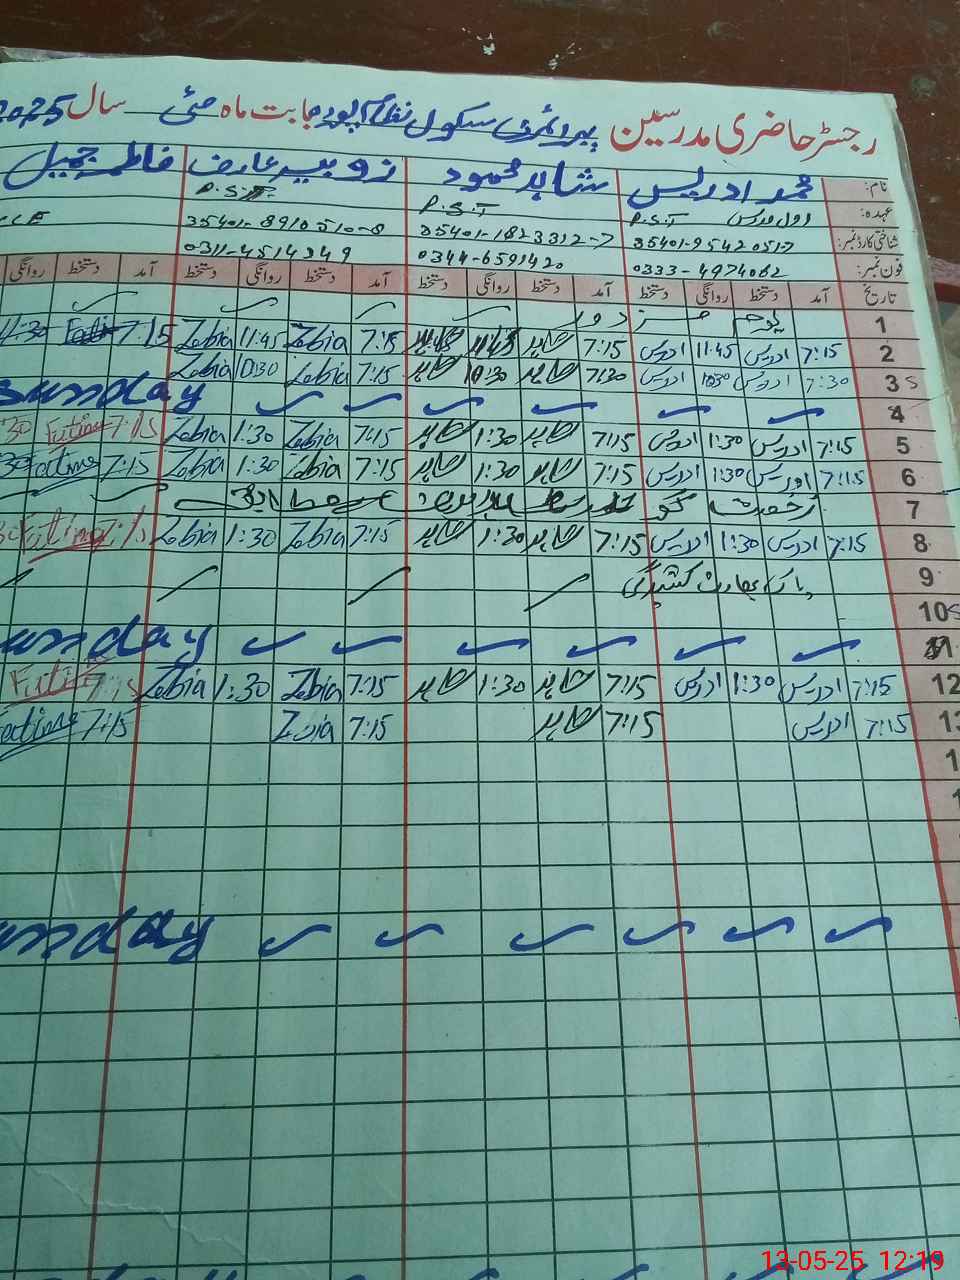 رجسٹر حاضری مدرسین پرائمری سکول نظام پورہ بابت ماہ مئی سال 2025
نام: محمد ادریس شاہد محمود زوبیہ عارف فاطمہ جمیل
عہدہ: اول مدرس P.S.T P.S.T P.S.T
شناختی کارڈ نمبر: 35401-9542051-7 35401-1823312-7 35401-8910510-8
فون نمبر: 0333-4974062 0344-6591420 0311-4514349
تاریخ آمد دستخط روانگی دستخط آمد دستخط روانگی دستخط آمد دستخط روانگی دستخط آمد دستخط روانگی
1 یوم مزدور
2 7:15 ادریس 11:45 ادریس 7:15 شاہد 11:45 شاہد 7:15 Zobia 11:45 Zobia 7:15 11:30
3 S 7:30 ادریس 10:30 ادریس 7:30 شاہد 10:30 شاہد 7:15 Zobia 10:30 Zobia
4 Sunday
5 7:15 ادریس 1:30 ادریس 7:15 شاہد 1:30 شاہد 7:15 Zobia 1:30 Zobia 7:15
6 7:15 ادریس 1:30 ادریس 7:15 شاہد 1:30 شاہد 7:15 Zobia 1:30 Zobia 7:15
7
8 7:15 ادریس 1:30 ادریس 7:15 شاہد 1:30 شاہد 7:15 Zobia 1:30 Zobia
9 پاک بھارت کشیدگی
10 S
11 Sunday
12 7:15 ادریس 1:30 ادریس 7:15 شاہد 1:30 شاہد 7:15 Zobia 1:30 Zobia
13 7:15 ادریس 7:15 شاہد 7:15 Zobia 7:15
Sunday
13-05-25 12:19